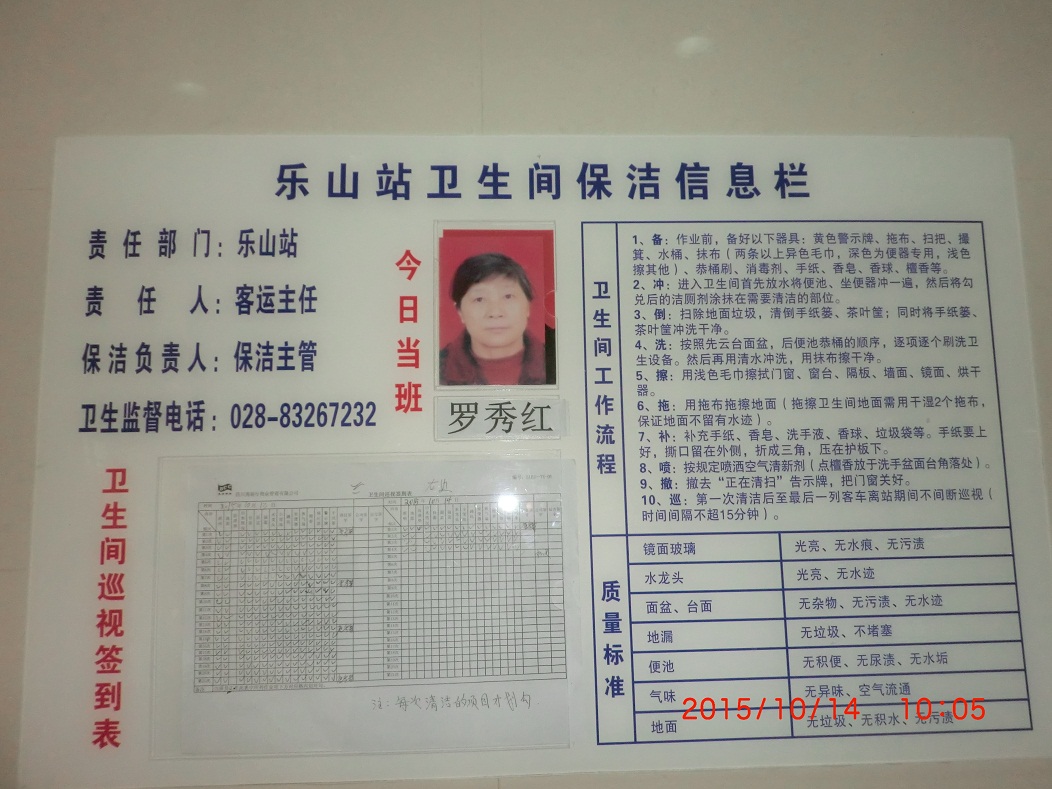 乐山站卫生间保洁信息栏
责任部门：乐山站
责任人：客运主任
保洁负责人：保洁主管
卫生监督电话：028-83267232
今日当班
罗秀红
卫生间巡视签到表
注：每次清洁的项目才划勾
卫生间工作流程
1、备：作业前，备好以下器具：黄色警示牌、拖布、扫把、撮
箕、水桶、抹布（两条以上异色毛巾，深色为便器专用，浅色
擦其他）、恭桶刷、消毒剂、手纸、香皂、香球、檀香等。
2、冲：进入卫生间首先放水将便池、坐便器冲一遍，然后将勾
兑后的洁厕剂涂抹在需要清洁的部位。
3、倒：扫除地面垃圾，清倒手纸篓、茶叶筐；同时将手纸篓、
茶叶筐冲洗干净。
4、洗：按照先云台面盆，后便池恭桶的顺序，逐项逐个刷洗卫
生设备。然后再用清水冲洗，用抹布擦干净。
5、擦：用浅色毛巾擦拭门窗、窗台、隔板、墙面、镜面、烘干
器。
6、拖：用拖布拖擦地面（拖擦卫生间地面需用干湿2个拖布，
保证地面不留有水迹）。
7、补：补充手纸、香皂、洗手液、香球、垃圾袋等。手纸要上
好，撕口留在外侧，折成三角，压在护板下。
8、喷：按规定喷洒空气清新剂（点檀香放于洗手盆面台角落处）。
9、撤：撤去“正在清扫”告示牌，把门窗关好。
10、巡：第一次清洁后至最后一列客车离站期间不间断巡视（
时间间隔不超15分钟）。
质量标准
镜面玻璃 光亮、无水痕、无污渍
水龙头 光亮、无水迹
面盆、台面 无杂物、无污渍、无水迹
地漏 无垃圾、不堵塞
便池 无积便、无尿渍、无水垢
气味 无异味、空气流通
地面 无垃圾、无积水、无污渍
2015/10/14 10:05